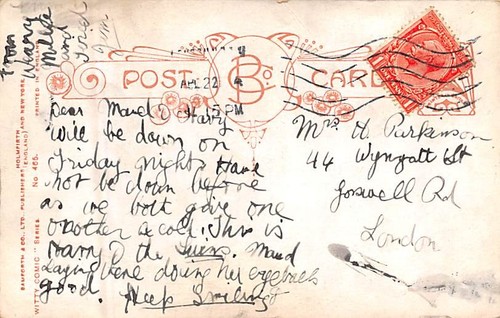 From
Nancy
Millie
and
Fred
POST CARD
B & Co.
5 PM
Dear Maud & Harry
Will be down on
Friday night. Have
not be down before
as we both gave one
another a cold. This is
Nancy & the twins. Maud
Laying here doing her
good. Keep Smiling
Mrs H Parkinson
44 Wynyatt St
Goswell Rd
London
BAMFORTH & CO., LTD., PUBLISHERS, HOLMFIRTH (ENGLAND) AND NEW YORK.
"WITTY COMIC" SERIES No 465.
PRINTED IN ENGLAND